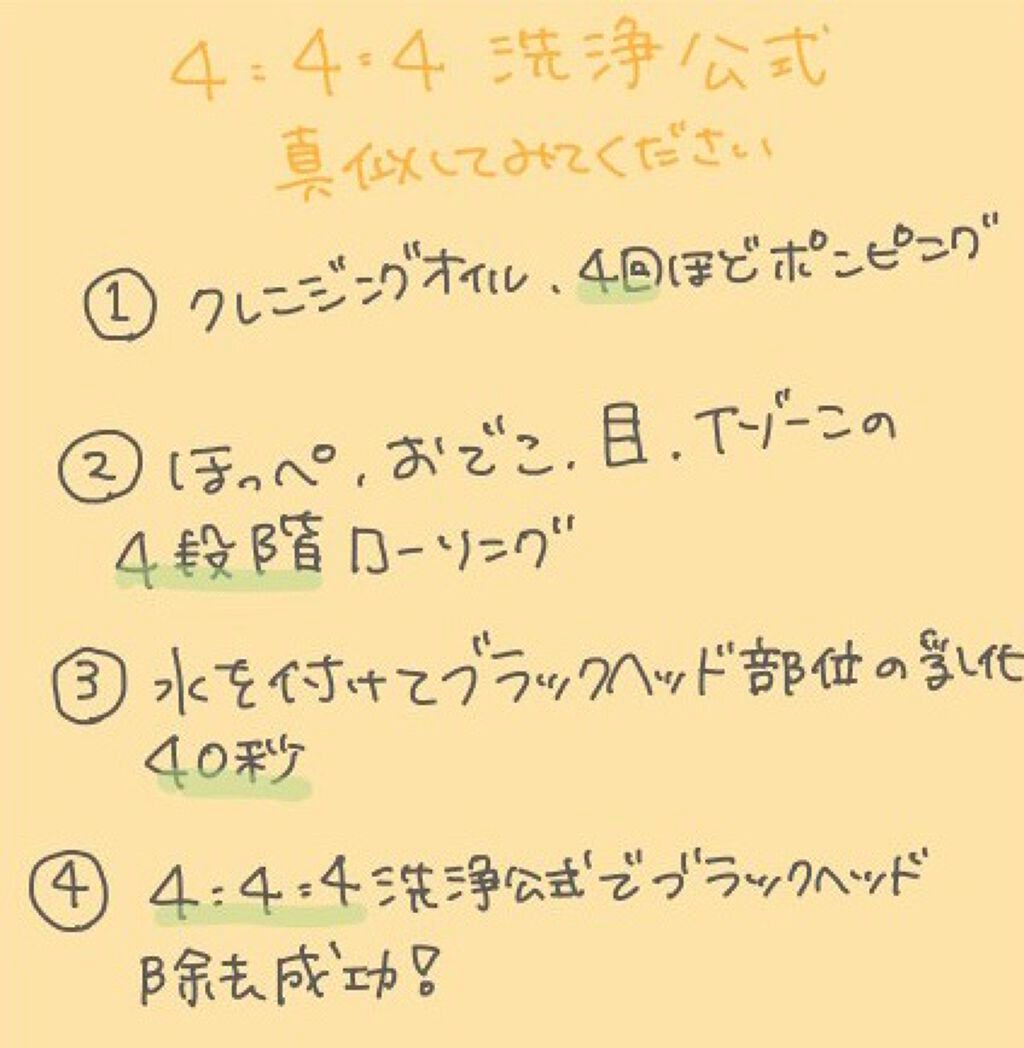 4:4:4 洗浄公式
真似してみてください
① クレンジングオイル、4回ほどポンピング
② ほっぺ、おでこ、目、Tゾーンの
4段階ローリング
③ 水を付けてブラックヘッド部位の乳化
40秒
④ 4:4:4洗浄公式でブラックヘッド
除去成功!